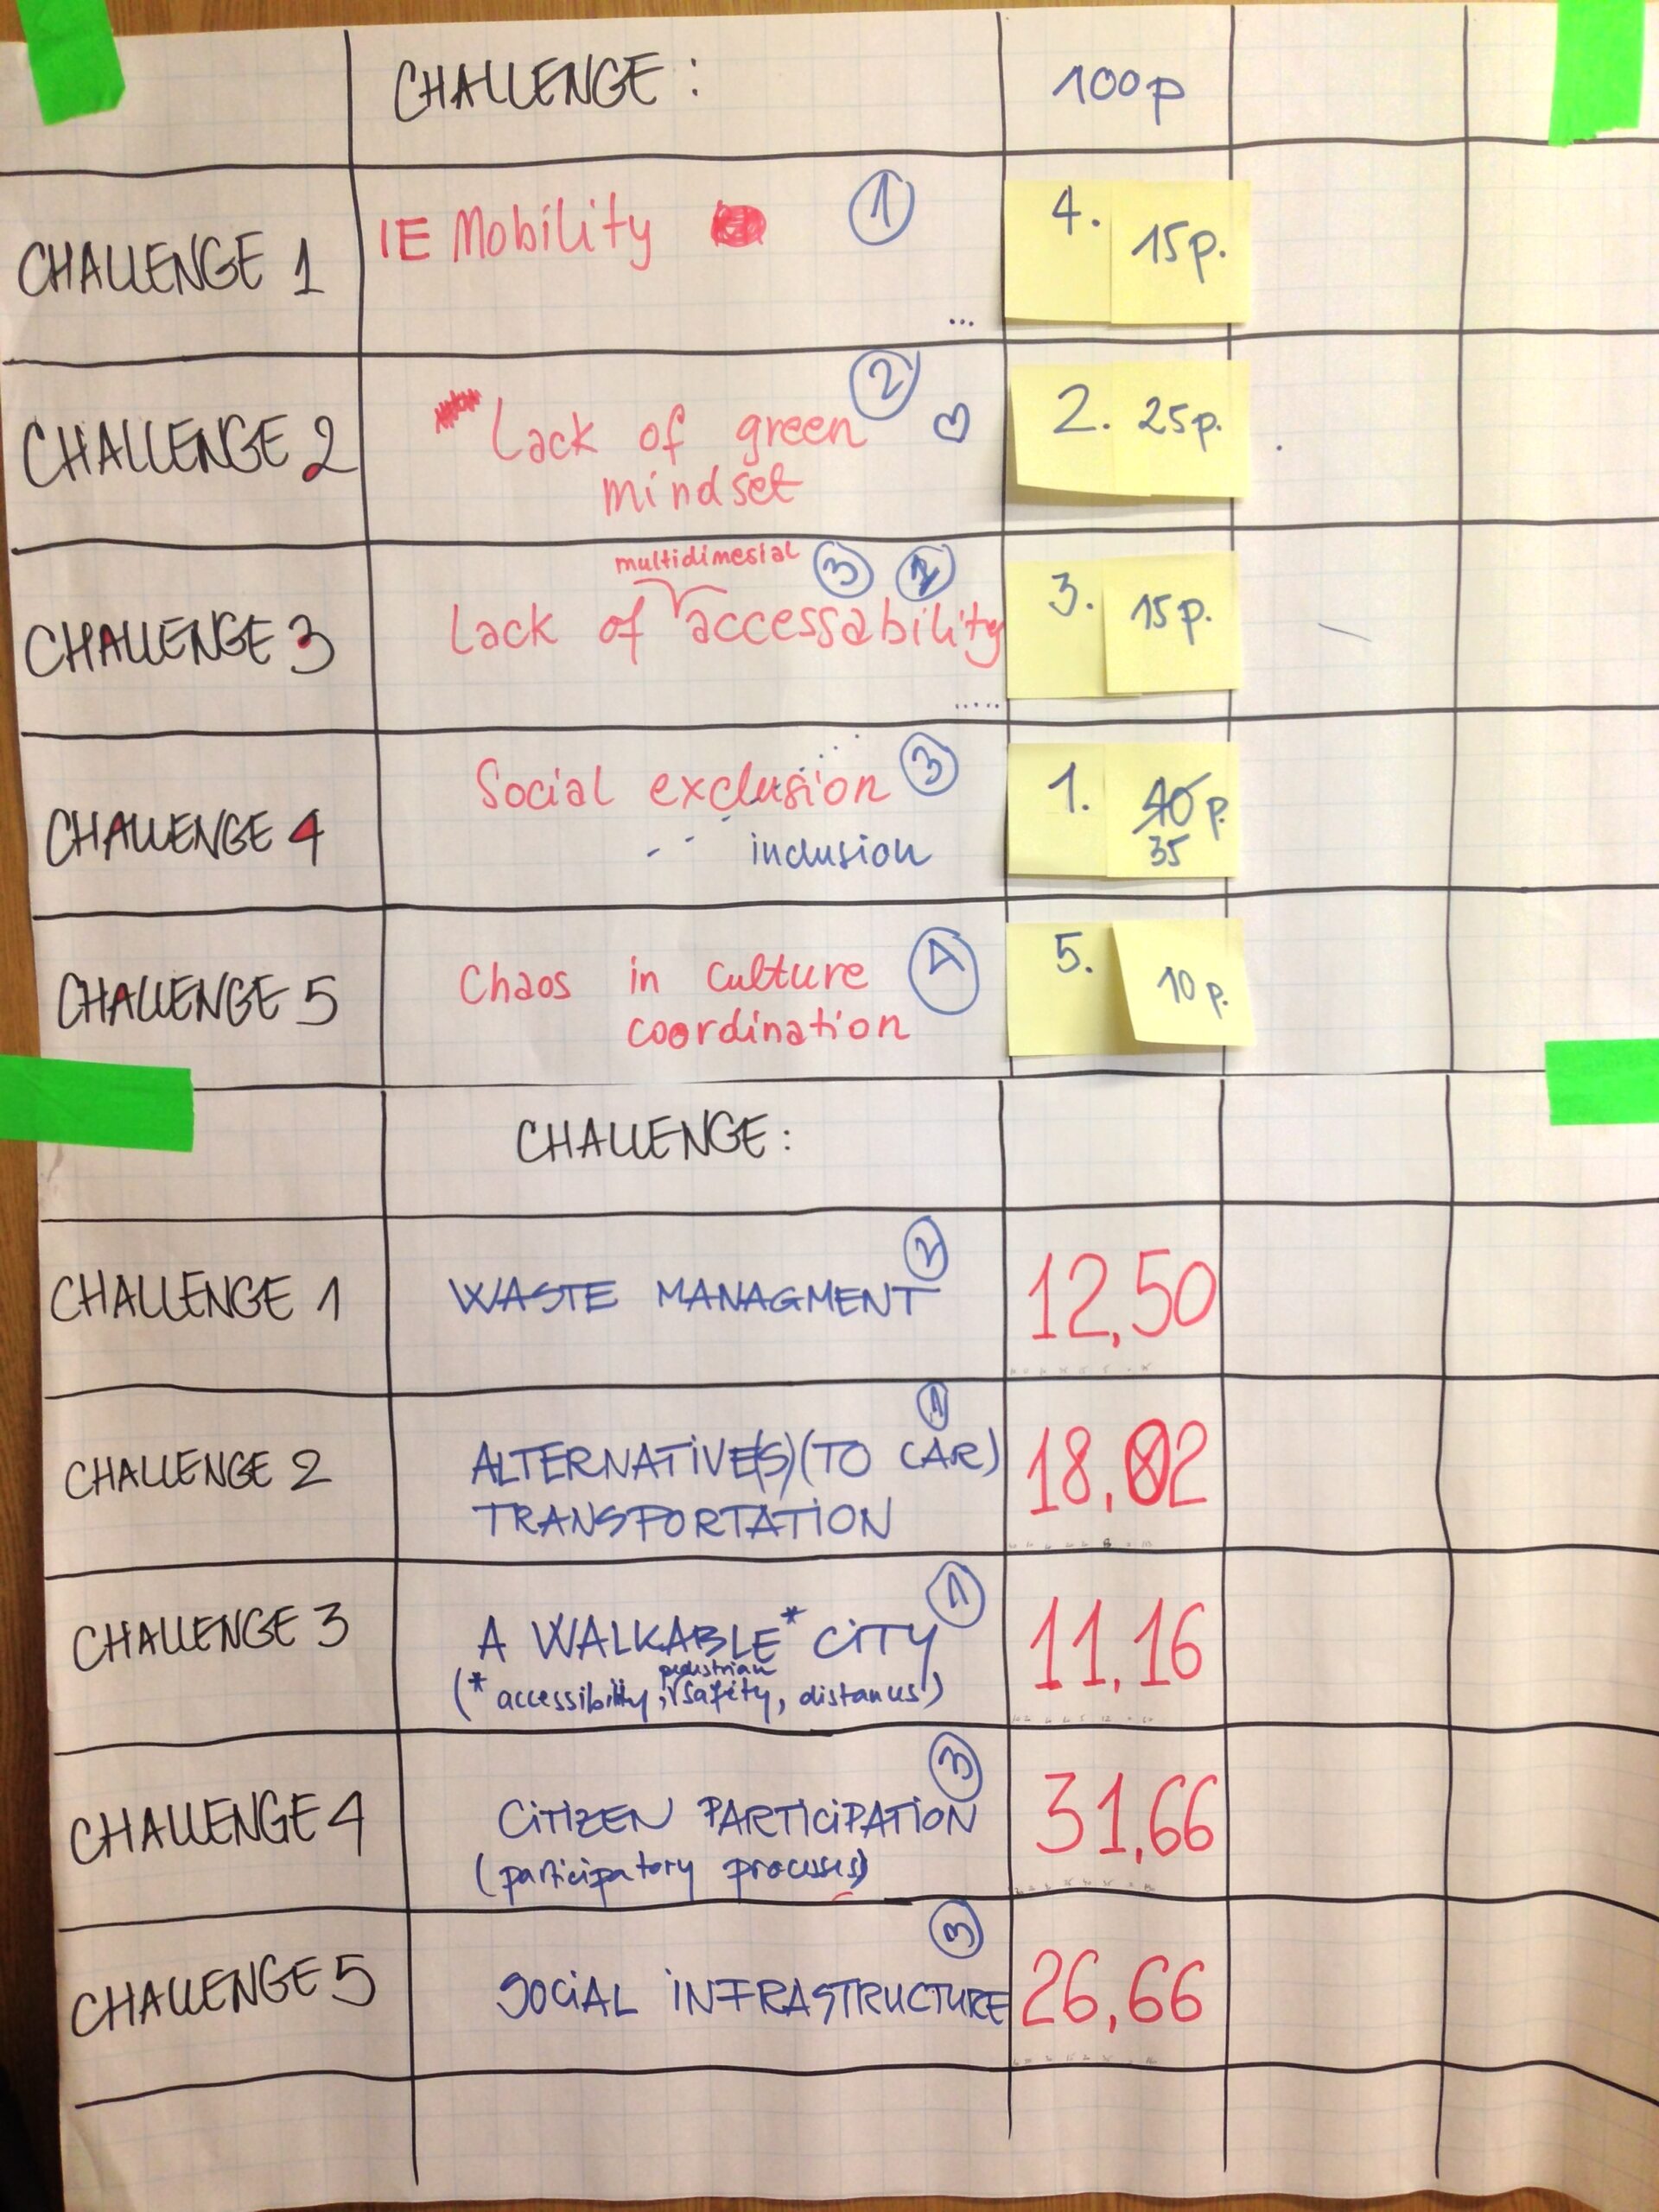 CHALLENGE: 100p
CHALLENGE 1 IE Mobility 1 4. 15p.
...
CHALLENGE 2 Lack of green 2 ♡ 2. 25p.
mindset
multidimesial 3 2
CHALLENGE 3 Lack of accessability 3. 15p.
.....
CHALLENGE 4 Social exclusion 3 1. 40 p.
inclusion 35
CHALLENGE 5 Chaos in culture 4 5. 10p.
coordination
CHALLENGE:
2
CHALLENGE 1 WASTE MANAGMENT 12,50
1
CHALLENGE 2 ALTERNATIVE(S) (TO CAR) 18,02
TRANSPORTATION
1
CHALLENGE 3 A WALKABLE* CITY 11,16
pedestrian
(* accessibility, safety, distances)
3
CHALLENGE 4 CITIZEN PARTICIPATION 31,66
(participatory processes)
3
CHALLENGE 5 SOCIAL INFRASTRUCTURE 26,66